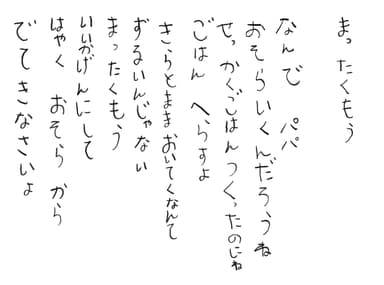 まったくもう
なんで パパ
おそらいくんだろうね
せっかくごはんつくったのにね
ごはん へらすよ
きらとままおいてくなんて
ずるいんじゃない
まったくもう
いいかげんにして
はやく おそら から
でてきなさいよ